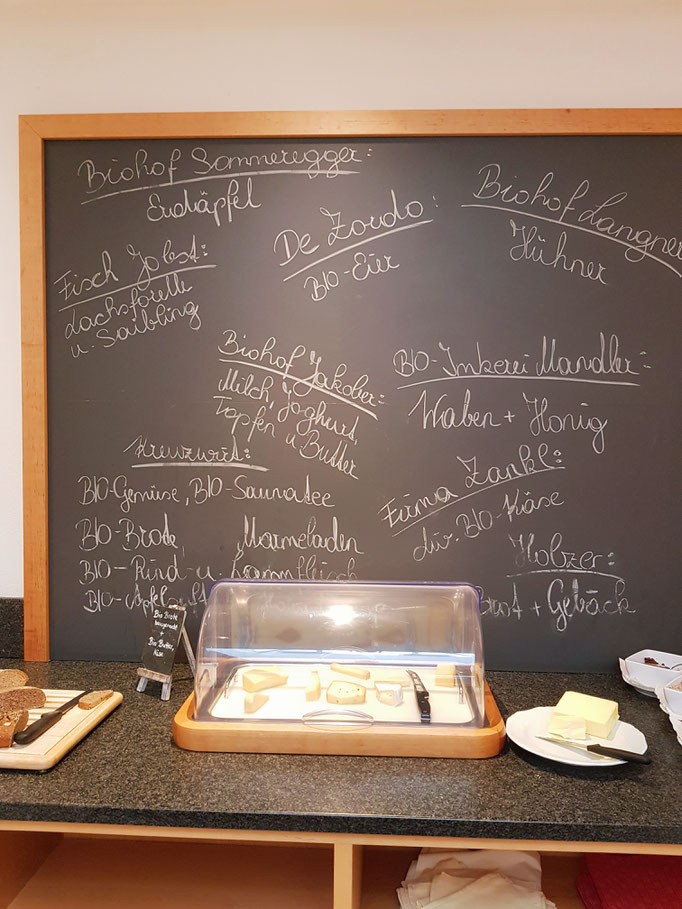 Biohof Sommeregger:
Erdäpfel
De Zordo:
BIO-Eier
Biohof Langner
Hühner
Fisch Jobst:
Lachsforelle
u. Saibling
Biohof Jakober:
Milch, Joghurt,
Topfen u Butter
BIO-Imkerei Mandler:
Waben + Honig
Kreuzwirt:
BIO-Gemüse, BIO-Saunatee
BIO-Brote Marmeladen
BIO-Rind- u. Lammfleisch
BIO-Apfelsaft
Firma Zankl:
div. BIO-Käse
Holzer:
Brot + Gebäck
Bio Brote
hausgemacht
+
Bio Butter,
Käse